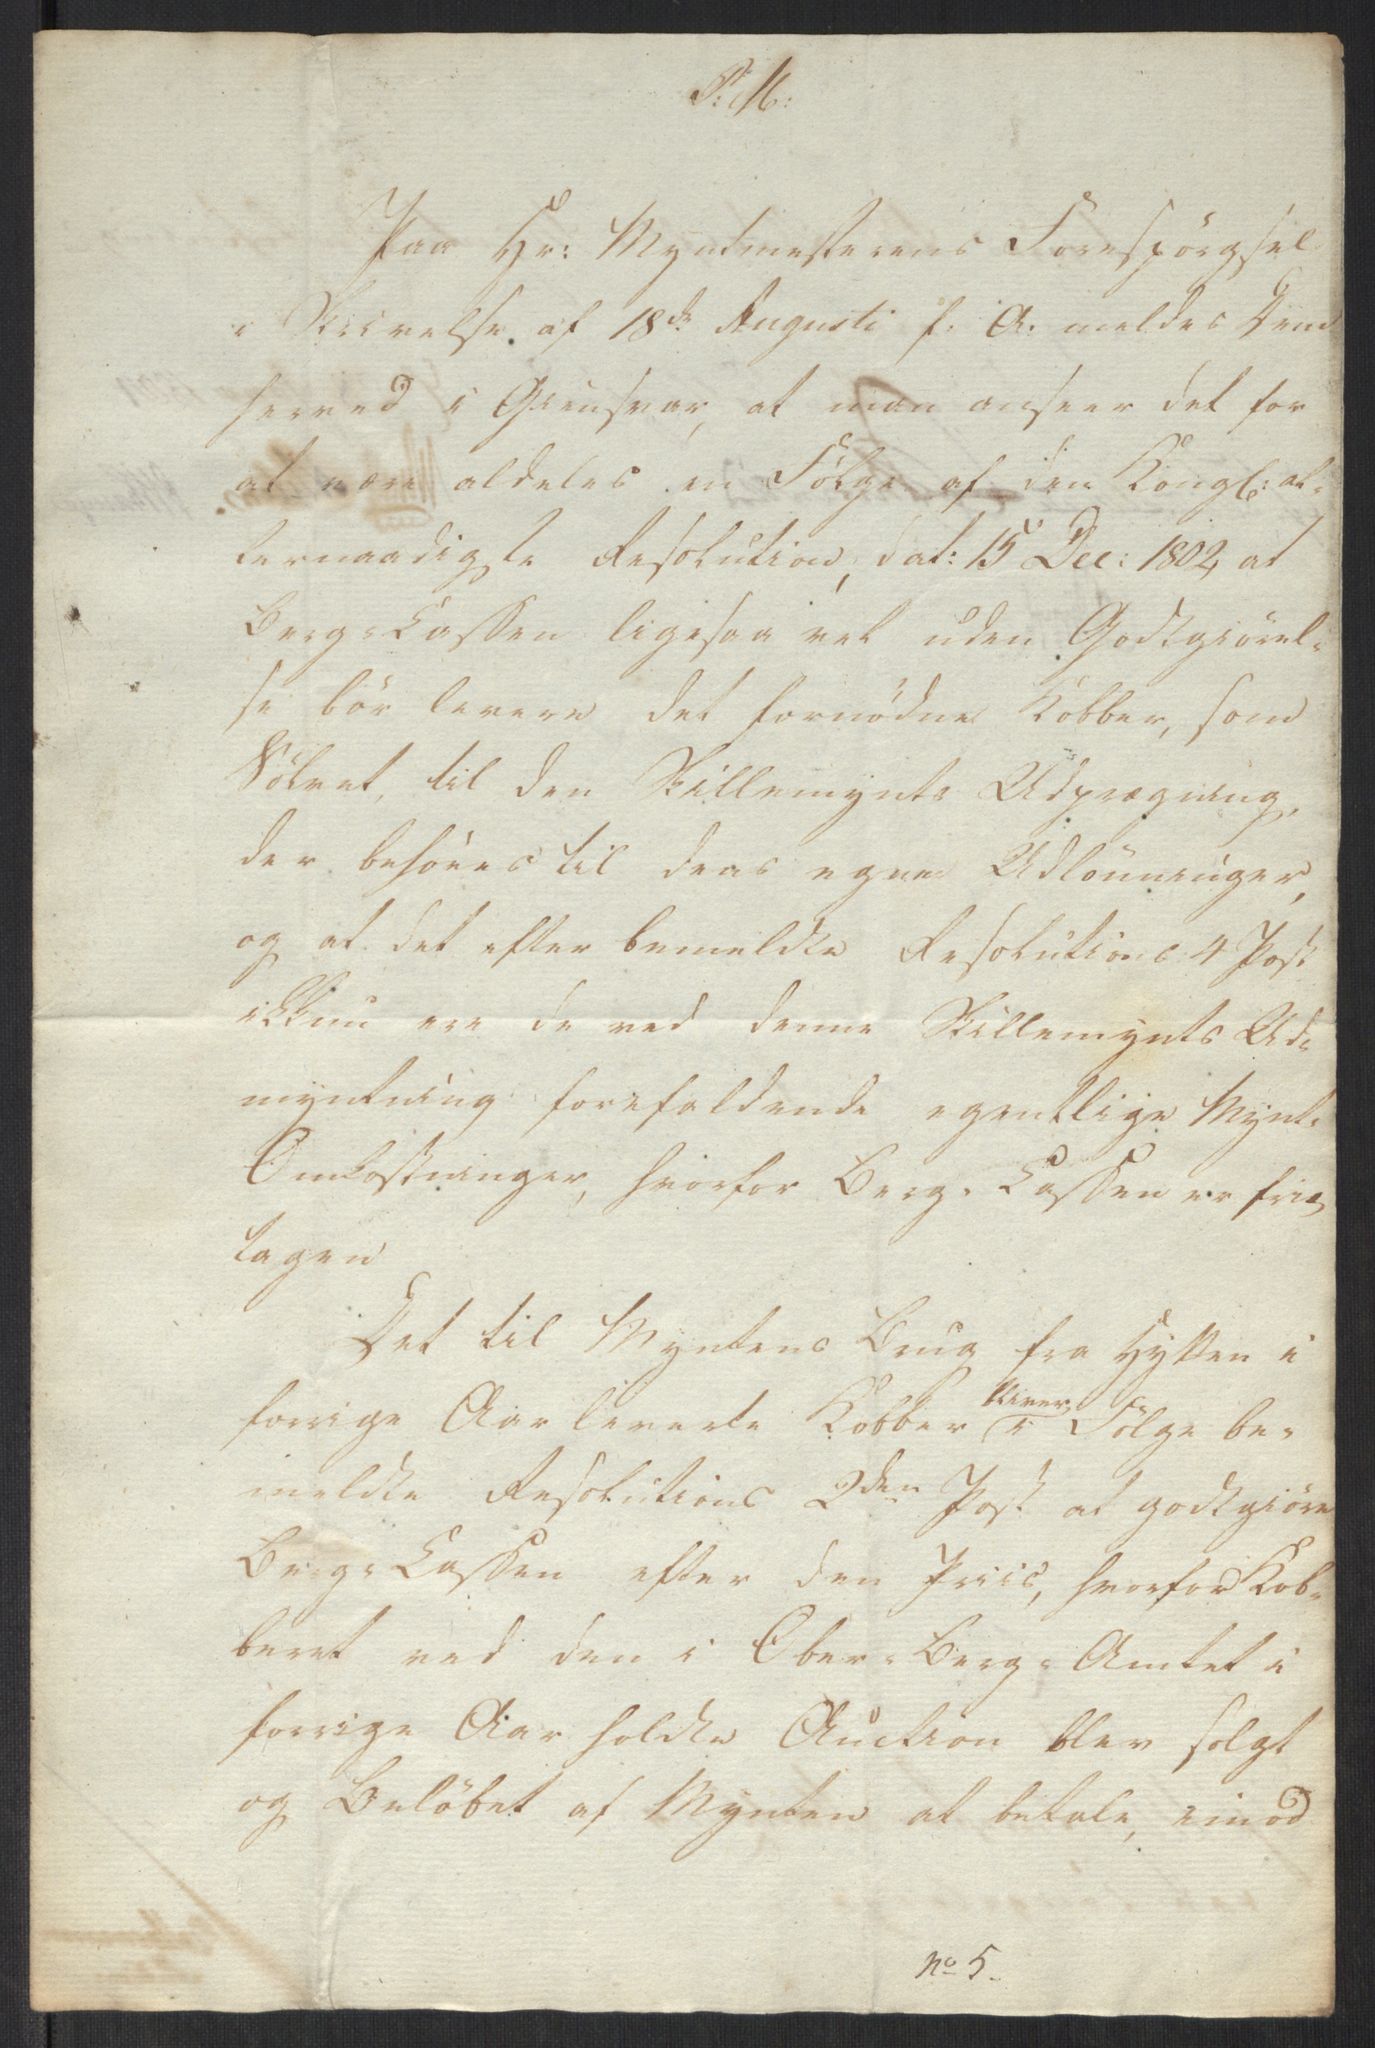 P: M:
Paa Hr: Myntmesterens Forespörgsel
i Skrivelse af 18de Augusti f. A. meldes Dem
herved i Giensvar, at man anseer det for
at være aldeles en Fölge af den Kongl: al-
lernaadigste Resolution, dat: 15 Dec: 1802, at
Berg-Cassen ligesaa vel uden Godtgiörel-
se bör levere det fornödne Kobber, som
Sölvet, til den Skillemynts Udprægning,
der behöves til dens egne Udlönninger,
og at det efter bemeldte Resolutions 4 Post
ikkun ere de ved denne Skillemynts Ud-
myntning forefaldende egentlige Mynt-
Omkostninger, hvorfor Berg-Cassen er frie
tagen
Det til Myntens Brug fra Hytten i
forrige Aar leverte Kobber bliver i Fölge be-
meldte Resolutions 2den Post at godtgiöre
Berg-Cassen efter den Priis, hvorfor Kob-
beret ved den i Ober-Berg-Amtet i
forrige Aar holdte Auction blev solgt
og Belöbet af Mynten at betale, imod
No 5.